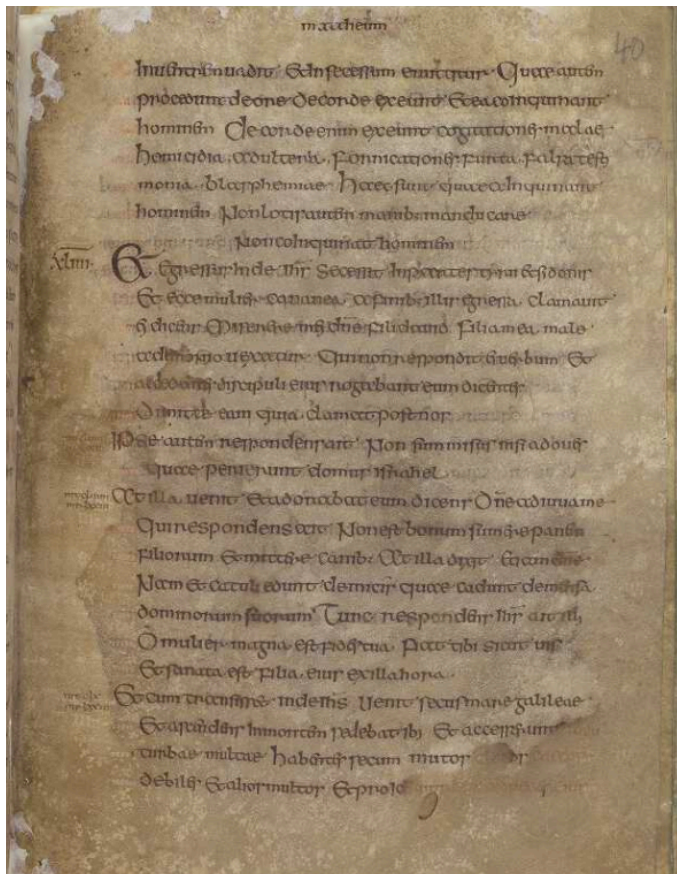 mattheum
40
Inuentrem uadit & In secessum emittitur Quae autem
procedunt deore decorde exeunt & ea coinquinant
hominem Decorde enim exeunt cogitationes malae
homicidia adulteria fornicationes furta falsa testi
monia blasphemiae haec sunt quae coInquinant
hominem Non lotis autem manibus manducare
Non coInquinat hominem
xluiii Et Egressus Inde ihs secessit Inpartes tyri &sidonis
Et ecce mulier cananea afinibus illis egressa clamauit
dicens Miserere mihi dne fili dauid filia mea male
ademonio uexatur Qui non respondit ei uerbum Et
accedentes discipuli eius rogabant eum dicentes
Dimitte eam quia clamat post nos
Ipse autem respondens ait Non sum misus nisi ad oues
quae perierunt domus israhel
At illa uenit & adorabat eum dicens Dne adiuua me
Qui respondens ait Non est bonum sumere panem
filiorum & mittere canibus At illa dixit Etiam dne
Nam & catuli edunt demicis quae cadunt demensa
dominorum suorum Tunc respondens ihs ait illi
O mulier magna est fides tua fiat tibi sicut uis
Et sanata est filia eius exilla hora
Et cum transisset inde ihs uenit secus mare galileae
Et ascendens Inmontem sedebat ibi Et accesserunt
turbae multae habentes secum mutos
debiles & alios multos & proie